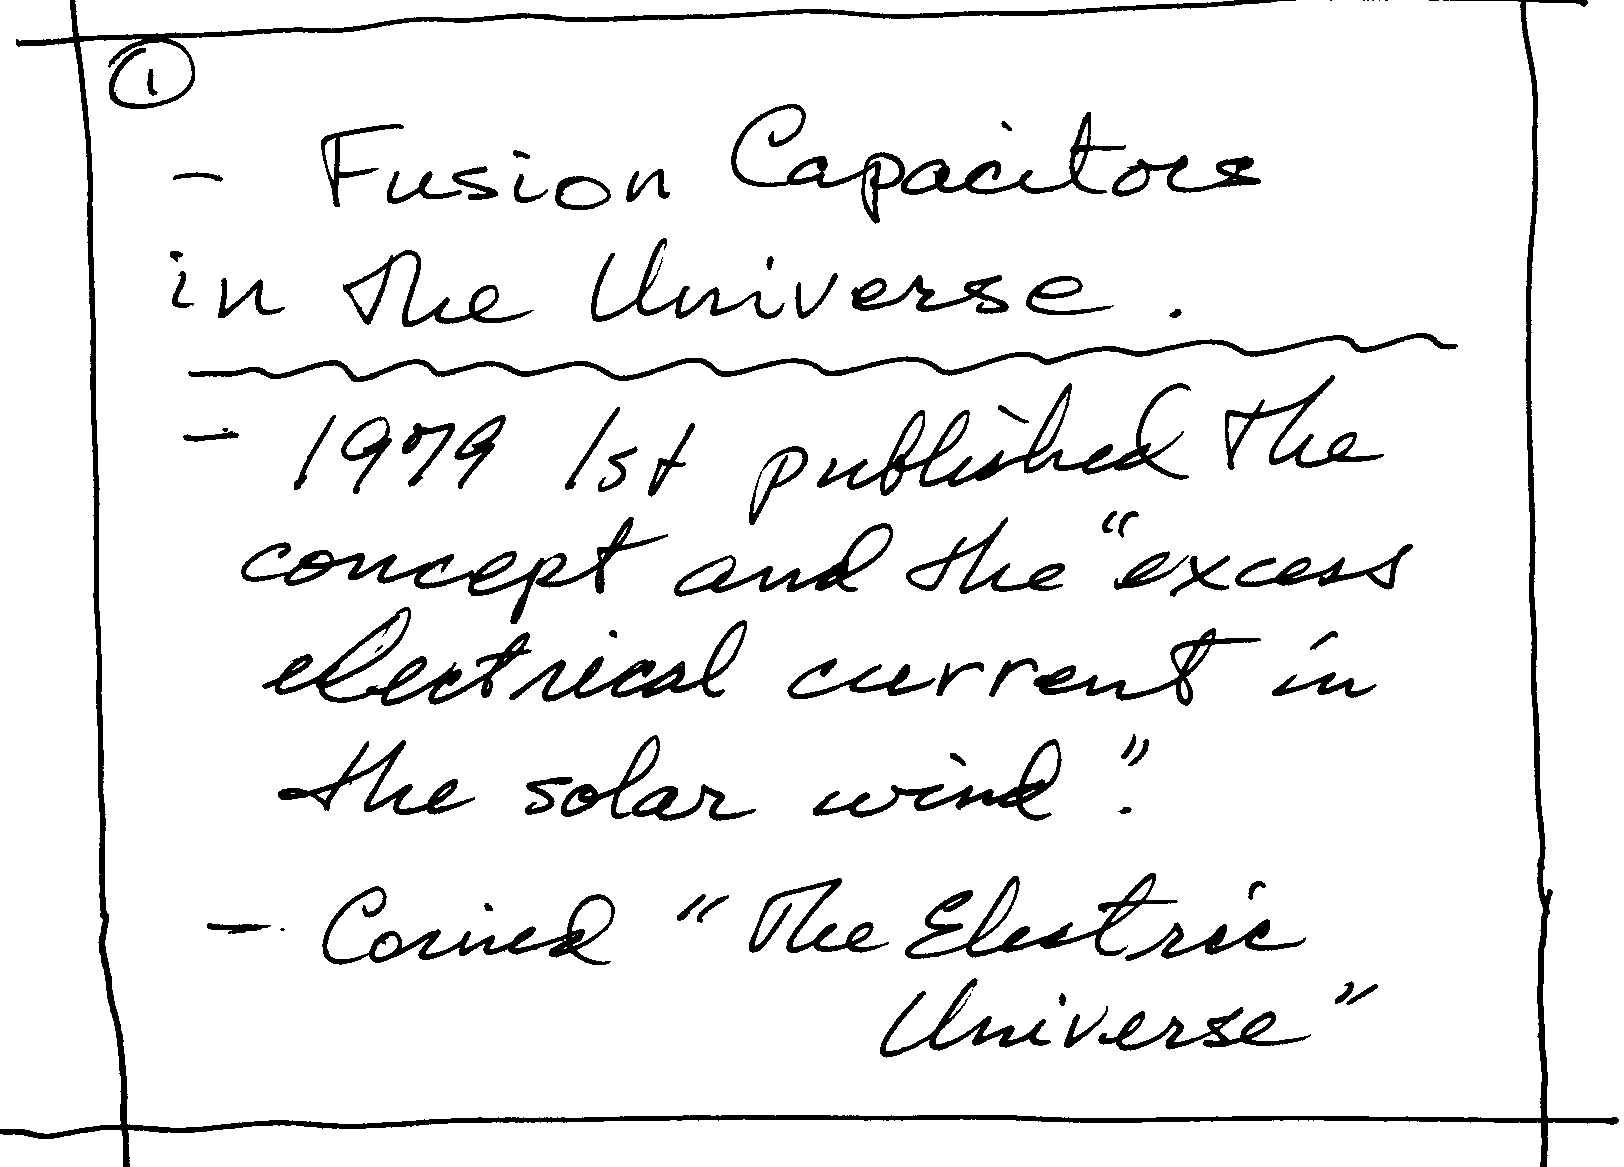 1
- Fusion Capacitors
in the Universe.
- 1979 1st published the
concept and the "excess
electrical current in
the solar wind".
- Coined "The Electric
Universe"